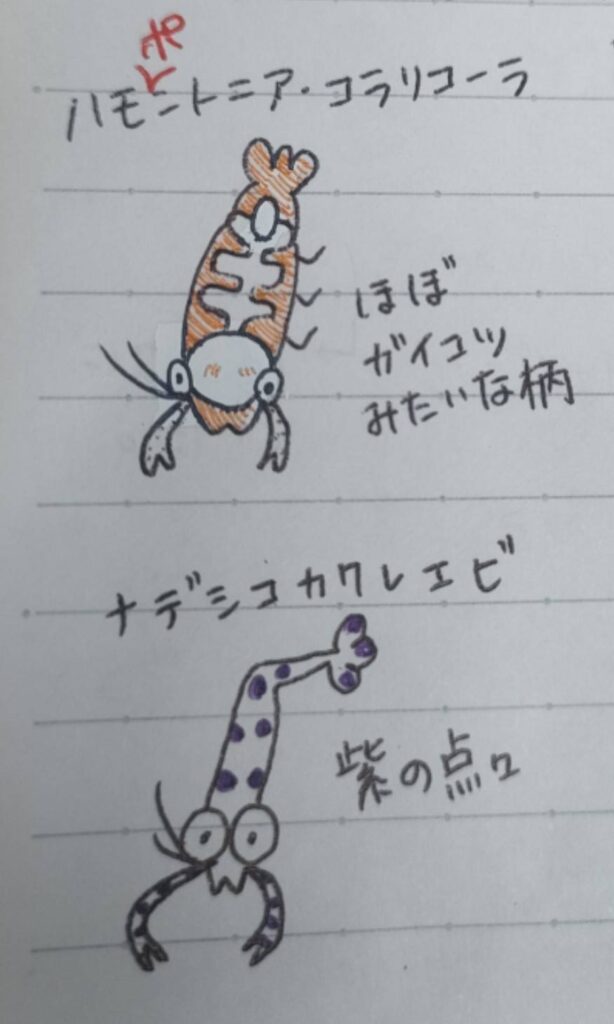 ポ
ハモニトニア・コラリコーラ
ほぼ
ガイコツ
みたいな柄
ナデシコカクレエビ
紫の点々